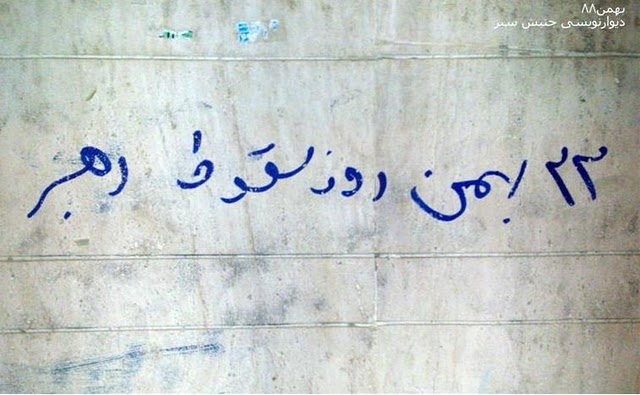 بهمن۸۸
دیوارنویسی جنبش سبز
۲۳ بهمن روز سقوط رهبر